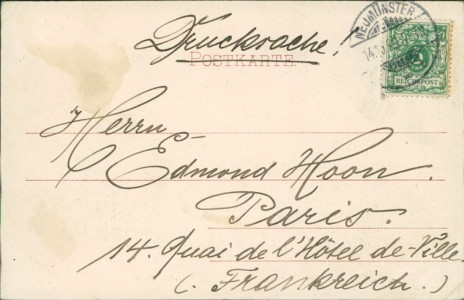 Drucksache!
POSTKARTE
NEUMÜNSTER
REICHSPOST
Herrn
Edmond Hoon.
Paris.
14. Quai de l'Hôtel de-Ville.
(. Frankreich.)